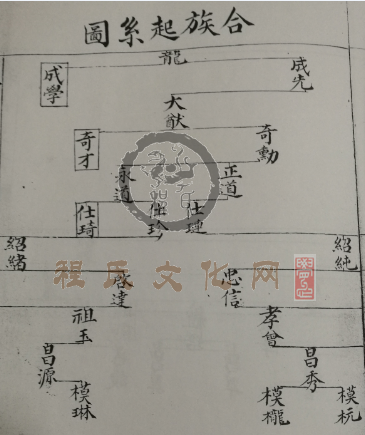 合族起系圖
龍
成先
成學
大猷
奇勳
奇才
正道
永道
仕璉
仕玲
仕琦
紹純
紹緒
忠信
啓達
孝曾
祖玉
昌秀
昌源
模杭
模櫳
模琳
程氏文化网